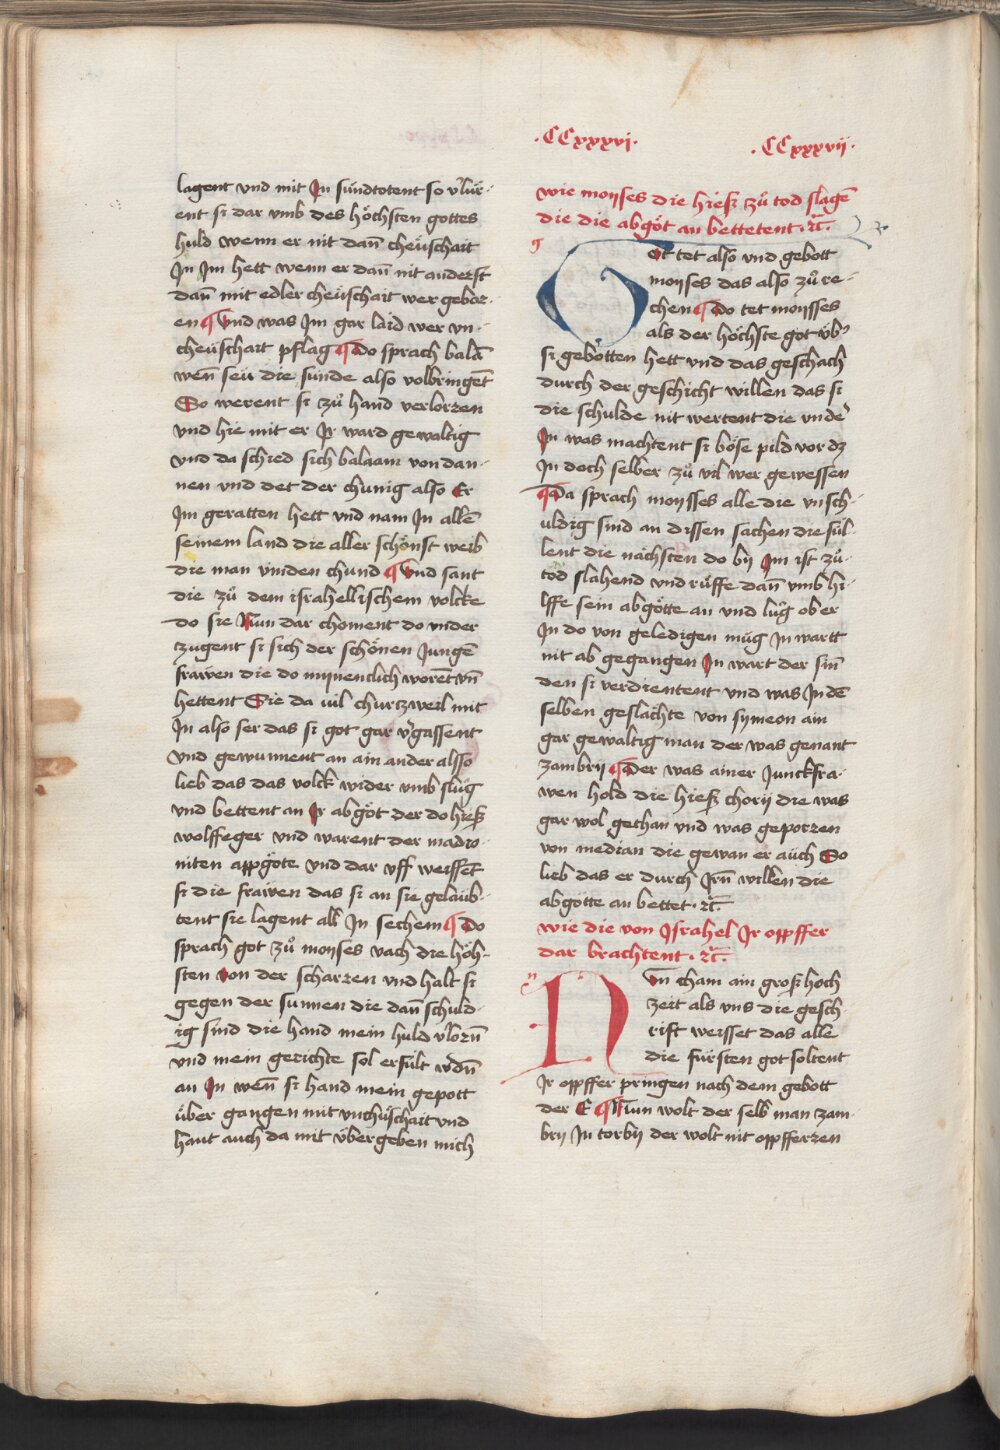 lagent vnd mit Jn sündtotent so v̾lür-
ent si dar vmb des höchsten gottes
huld wenn er nit dañ cheüschait
Jn Jm hett wenn er dañ nit anderst
dañ mit edler cheüschait wer gebor-
en ¶ Vnd was Jm gar laid wer vn-
cheüschait pflag ¶ Do sprach balā
wen̄ seü die sünde also volbringēt
So werent si zů hand verlorren
vnd hie mit er Jr ward gewaltig
vnd da schied sich balaam von dan-
nen vnd det der chunig also Er
Jm geratten hett vnd nam Jn allē
seinem land die aller schönst weib
die man vinden chund ¶ Vnd sant
die zů dem israhellischem volcke
do sie Nun dar choment do vnder
zugent si sich der schönen Jungē
frawen die do mynenclich worēt vn̄
hettent Sie da vil churczweil mit
Jn also ser das si got gar v̾gassent
vnd gewunnent an ain ander alsso
lieb das das volck wider vmb slůg
vnd bettent an Jr abgöt der do hieß
wolffeger vnd warent der madio-
niten appgöte vnd dar vff weissēt
si die frawen das si an sie gelaub-
tent sie lagent all Jn sechem ¶ Do
sprach got zů moyses vach die höh-
sten von der scharren vnd halt si
gegen der sunnen die dañ schuld-
ig sind die hand mein huld v̾lorn̄
vnd mein gerichte sol erfült wdn̄
an Jn wen̄ si hand mein gepott
über gangen mit vnchüschait vnd
hant auch da mit übergeben mich
·CCxxxvi·
·CCxxxvij·
wie moyses die hieß zů tod slagē
die die abgöt an bettetent · rc̄.
g
Ot tet also vnd gebott
moyses das also zů re-
chen ¶ Do tet moysses
als der höchste got üb̾
si gebotten hett vnd das geschach
durch der geschicht willen das si
die schulde nit wertent die vnder
Jn was machtent si böse pild vor dz
Jn doch selber zů vil wer gewessen
¶ Da sprach moysses alle die vnsch-
uldig sind an dissen sachen die sül-
lent die nächsten do by Jm ist zů-
tod slahend vnd rüffe dañ vmb hi-
lffe sein abgötte an vnd lůg ob er
Jn do von geledigen müg Jn wartt
nit ab gegangen Jn wart der sin̄
den si verdientent vnd was Jn dē
selben geslächte von symeon ain
gar gewaltig man der was genant
zambrij ¶ Der was ainer Junckfra-
wen hold die hieß chorij die was
gar wol gethan vnd was geporren
von median die gewan er auch So
lieb das er durch Jrn̄ willen die
abgötte an bettet · rc̄.
wie die von Jsrahel Jr oppffer
dar brachtent · rc̄.
n
Vn cham ain groß hoch
zeit als vns die gesch
rifft weisset das alle
die fürsten got soltent
Jr oppffer pringen nach dem gebott
der E ¶ Nun wolt der selb man zam-
brij Jn torbij der wolt nit oppfferren